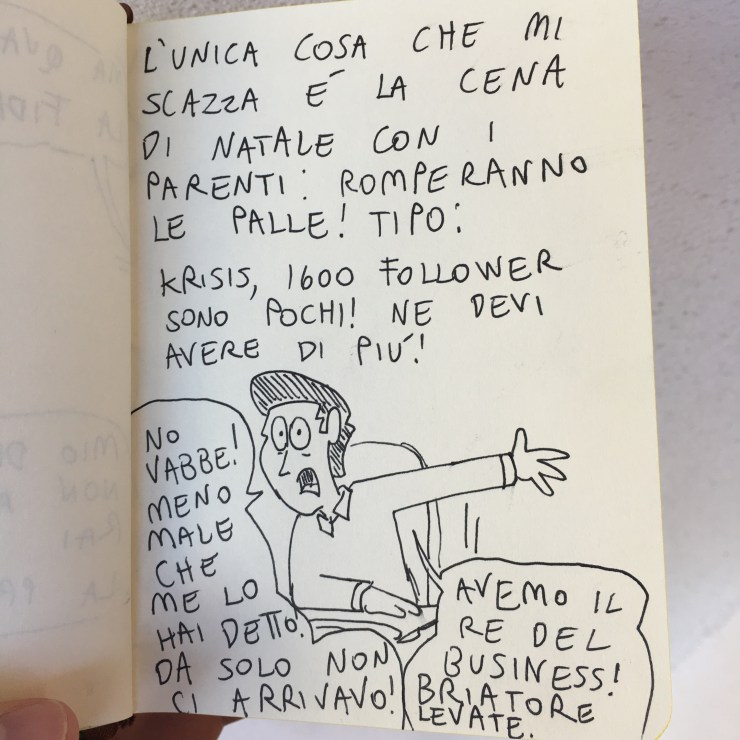 L'UNICA COSA CHE MI
SCAZZA É LA CENA
DI NATALE CON I
PARENTI: ROMPERANNO
LE PALLE! TIPO:
KRISIS, 1600 FOLLOWER
SONO POCHI! NE DEVI
AVERE DI PIÚ!
NO
VABBE!
MENO
MALE
CHE
ME LO
HAI DETTO!
DA SOLO NON
CI ARRIVAVO!
AVEMO IL
RE DEL
BUSINESS!
BRIATORE
LEVATE.